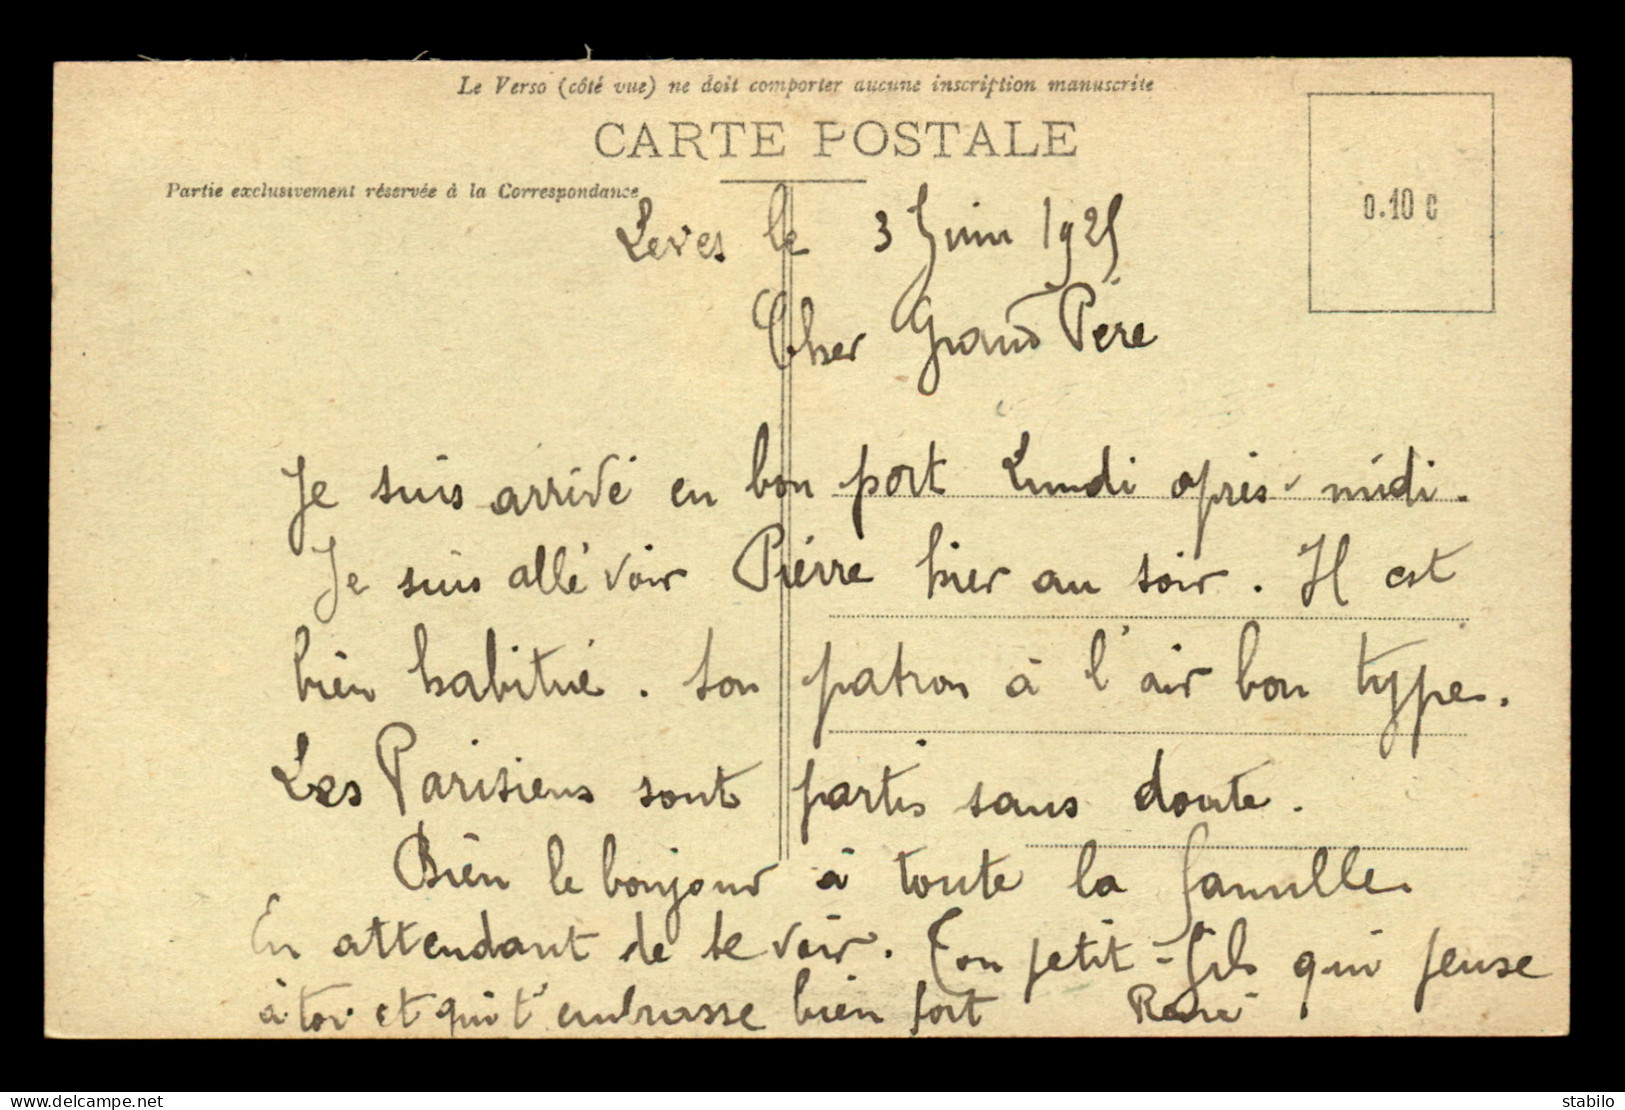 Le Verso (côté vue) ne doit comporter aucune inscription manuscrite
CARTE POSTALE
Partie exclusivement réservée à la Correspondance
0.10 c
Leves le 3 Juin 1925
Cher Grand Père
Je suis arrivé en bon port Lundi après-midi.
Je suis allé voir Pierre hier au soir. Il est
bien habitué. Son patron à l'air bon type.
Les Parisiens sont partis sans doute.
Bien le bonjour à toute la famille.
En attendant de te voir. Ton petit-fils qui pense
à toi et qui t'embrasse bien fort René
www.delcampe.net
stabilo